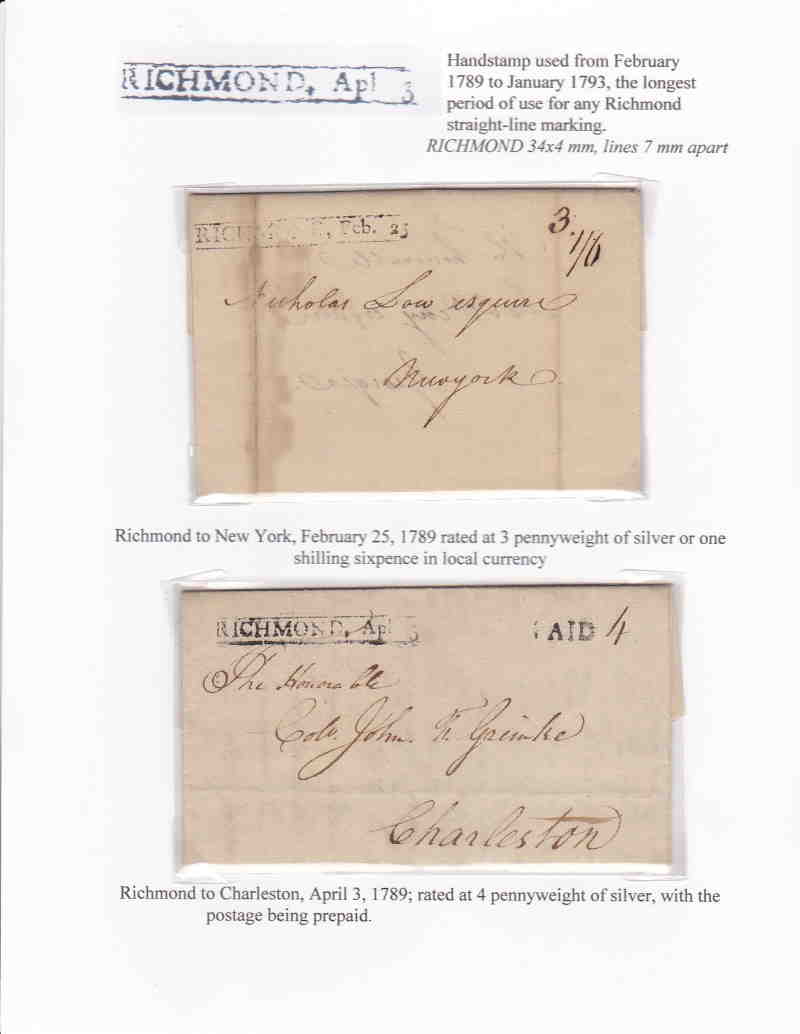 RICHMOND, Apl 3
Handstamp used from February
1789 to January 1793, the longest
period of use for any Richmond
straight-line marking.
RICHMOND 34x4 mm, lines 7 mm apart
RICHMOND, Feb. 25
3
1/6
Nicholas Low esquire
Newyork
Richmond to New York, February 25, 1789 rated at 3 pennyweight of silver or one
shilling sixpence in local currency
RICHMOND, Apl 3
PAID 4
The Honorable
Colo. John F. Grimke
Charleston
Richmond to Charleston, April 3, 1789; rated at 4 pennyweight of silver, with the
postage being prepaid.